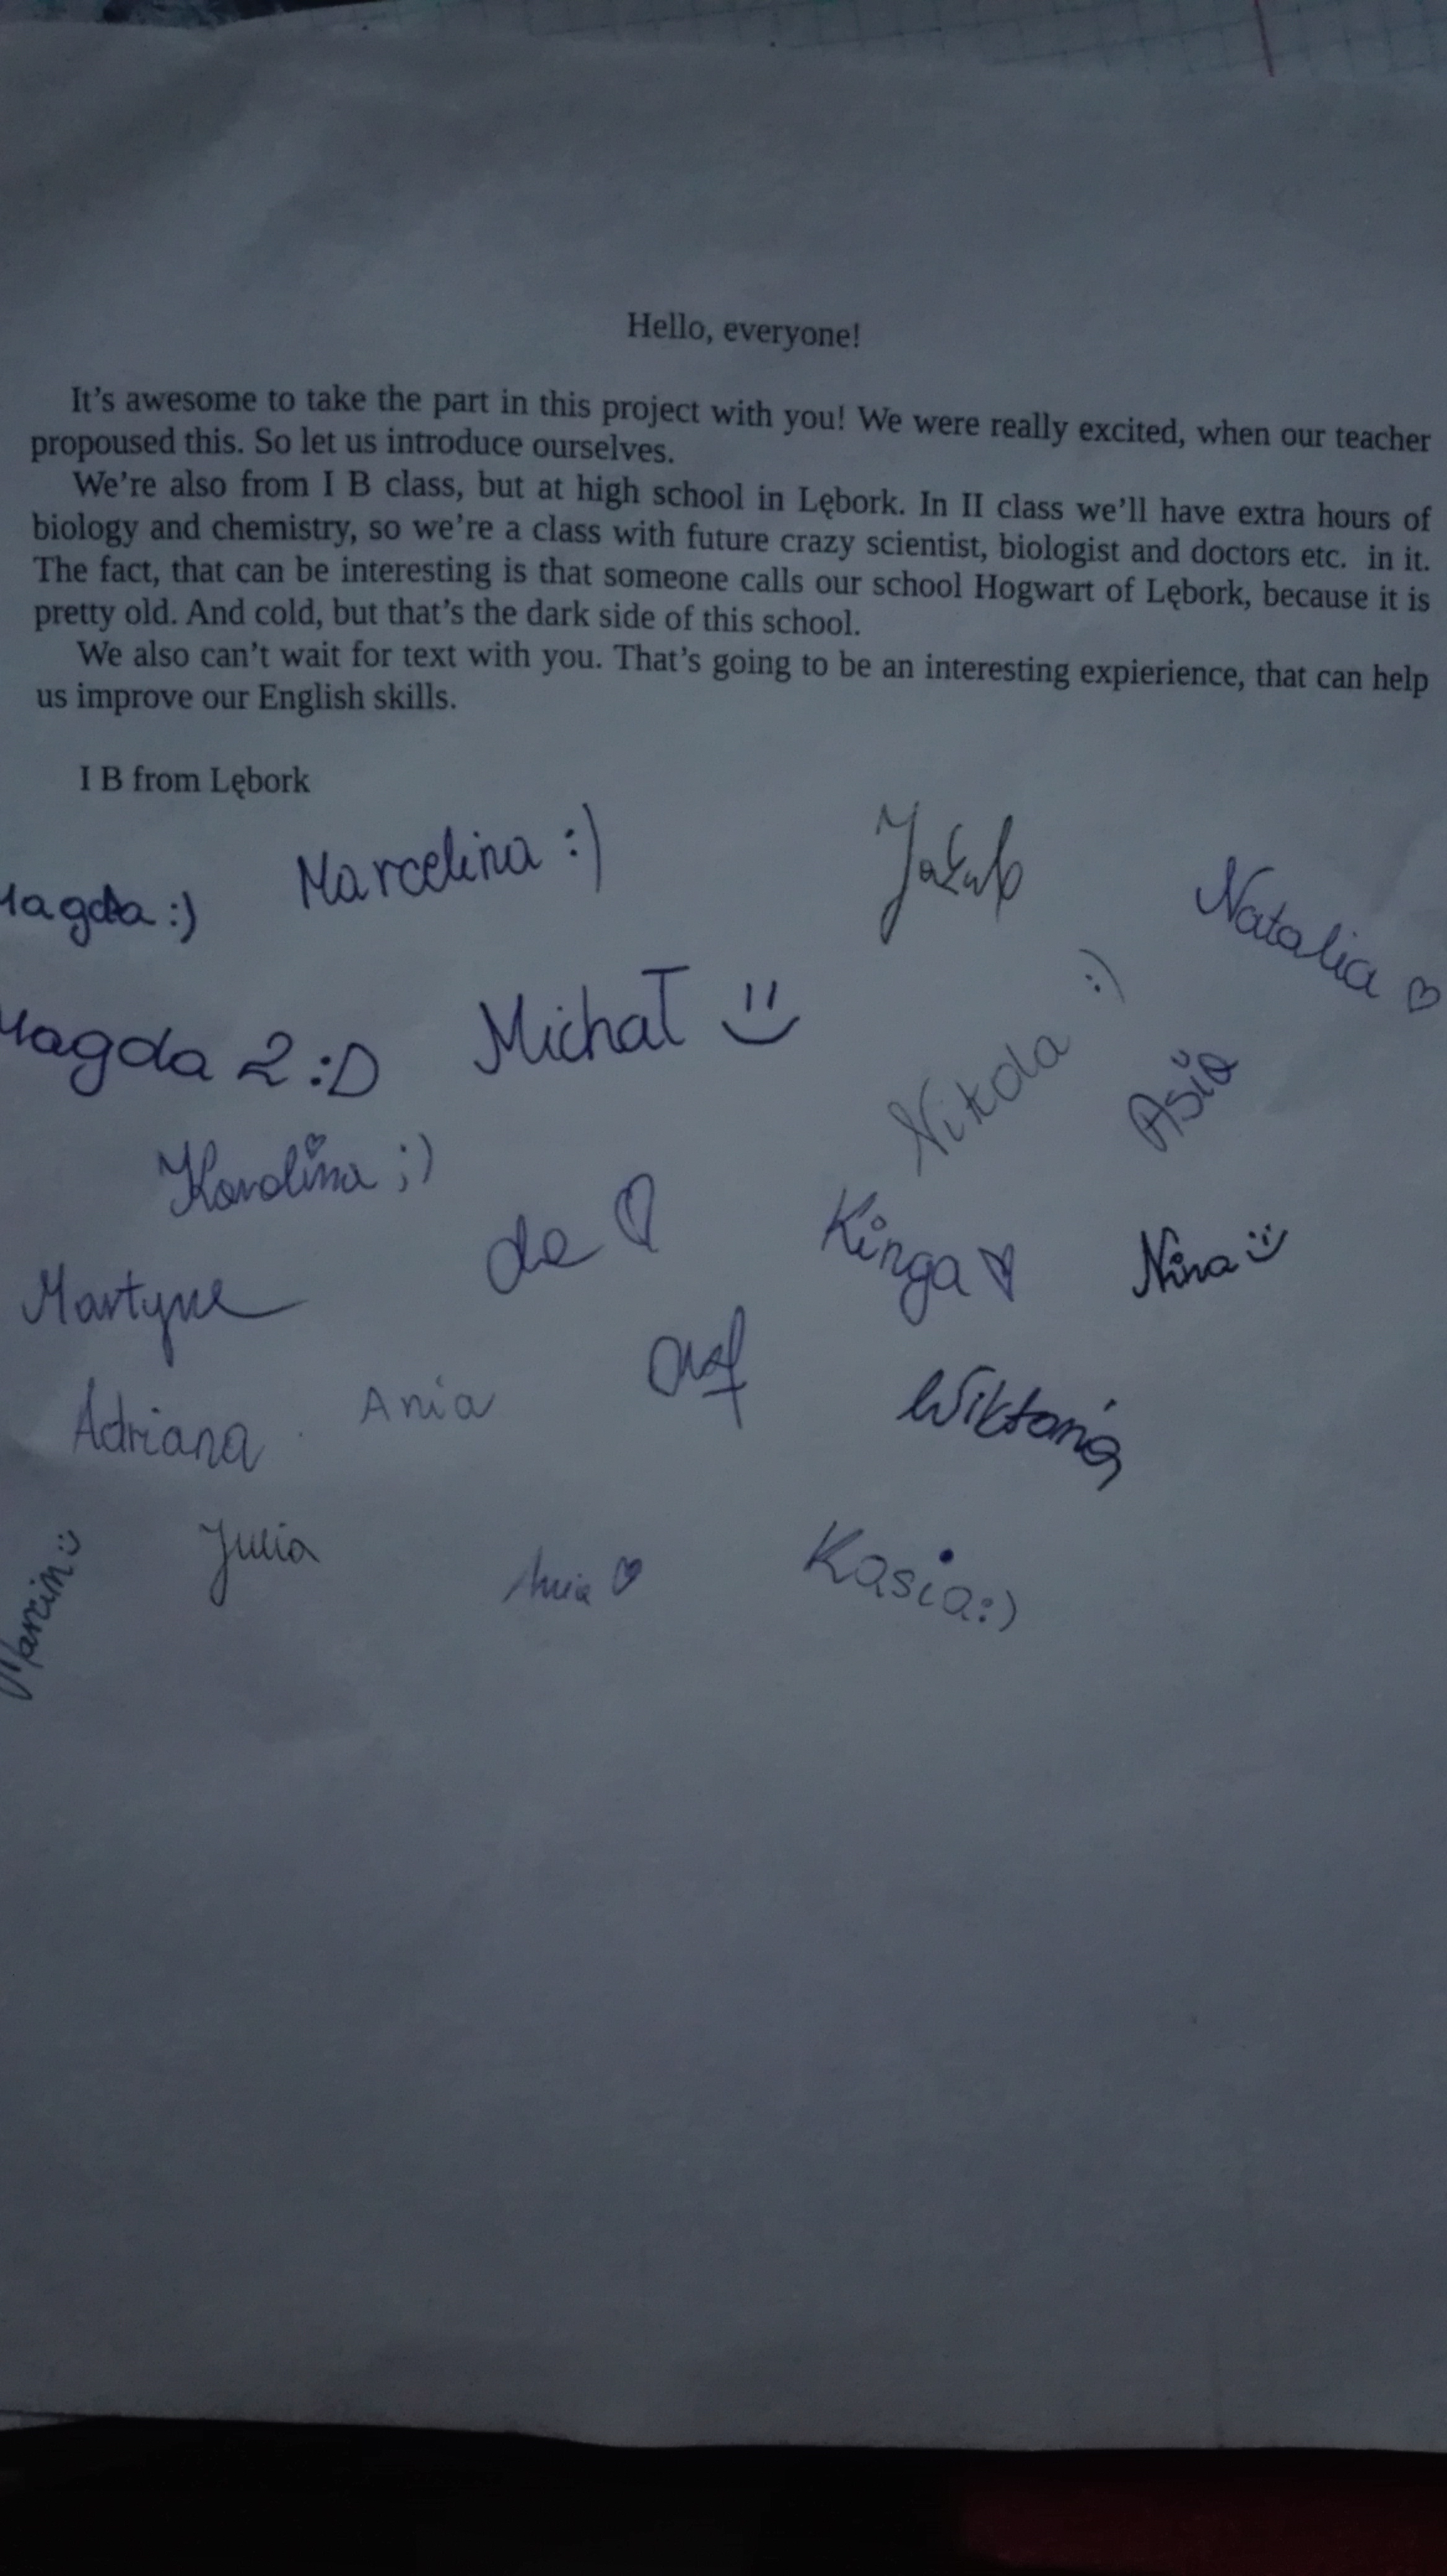 Hello, everyone!
It's awesome to take the part in this project with you! We were really excited, when our teacher
propoused this. So let us introduce ourselves.
We're also from I B class, but at high school in Lębork. In II class we'll have extra hours of
biology and chemistry, so we're a class with future crazy scientist, biologist and doctors etc. in it.
The fact, that can be interesting is that someone calls our school Hogwart of Lębork, because it is
pretty old. And cold, but that's the dark side of this school.
We also can't wait for text with you. That's going to be an interesting expierience, that can help
us improve our English skills.
I B from Lębork
Magda :)
Marcelina :)
Jakub
Natalia ♡
Magda 2 :D
Michał
Nikola :)
Asia
Karolina ;)
Kinga ♡
Nina
Martyna
Adriana
Ania
Wiktoria
Marcin
Julia
Kasia :)